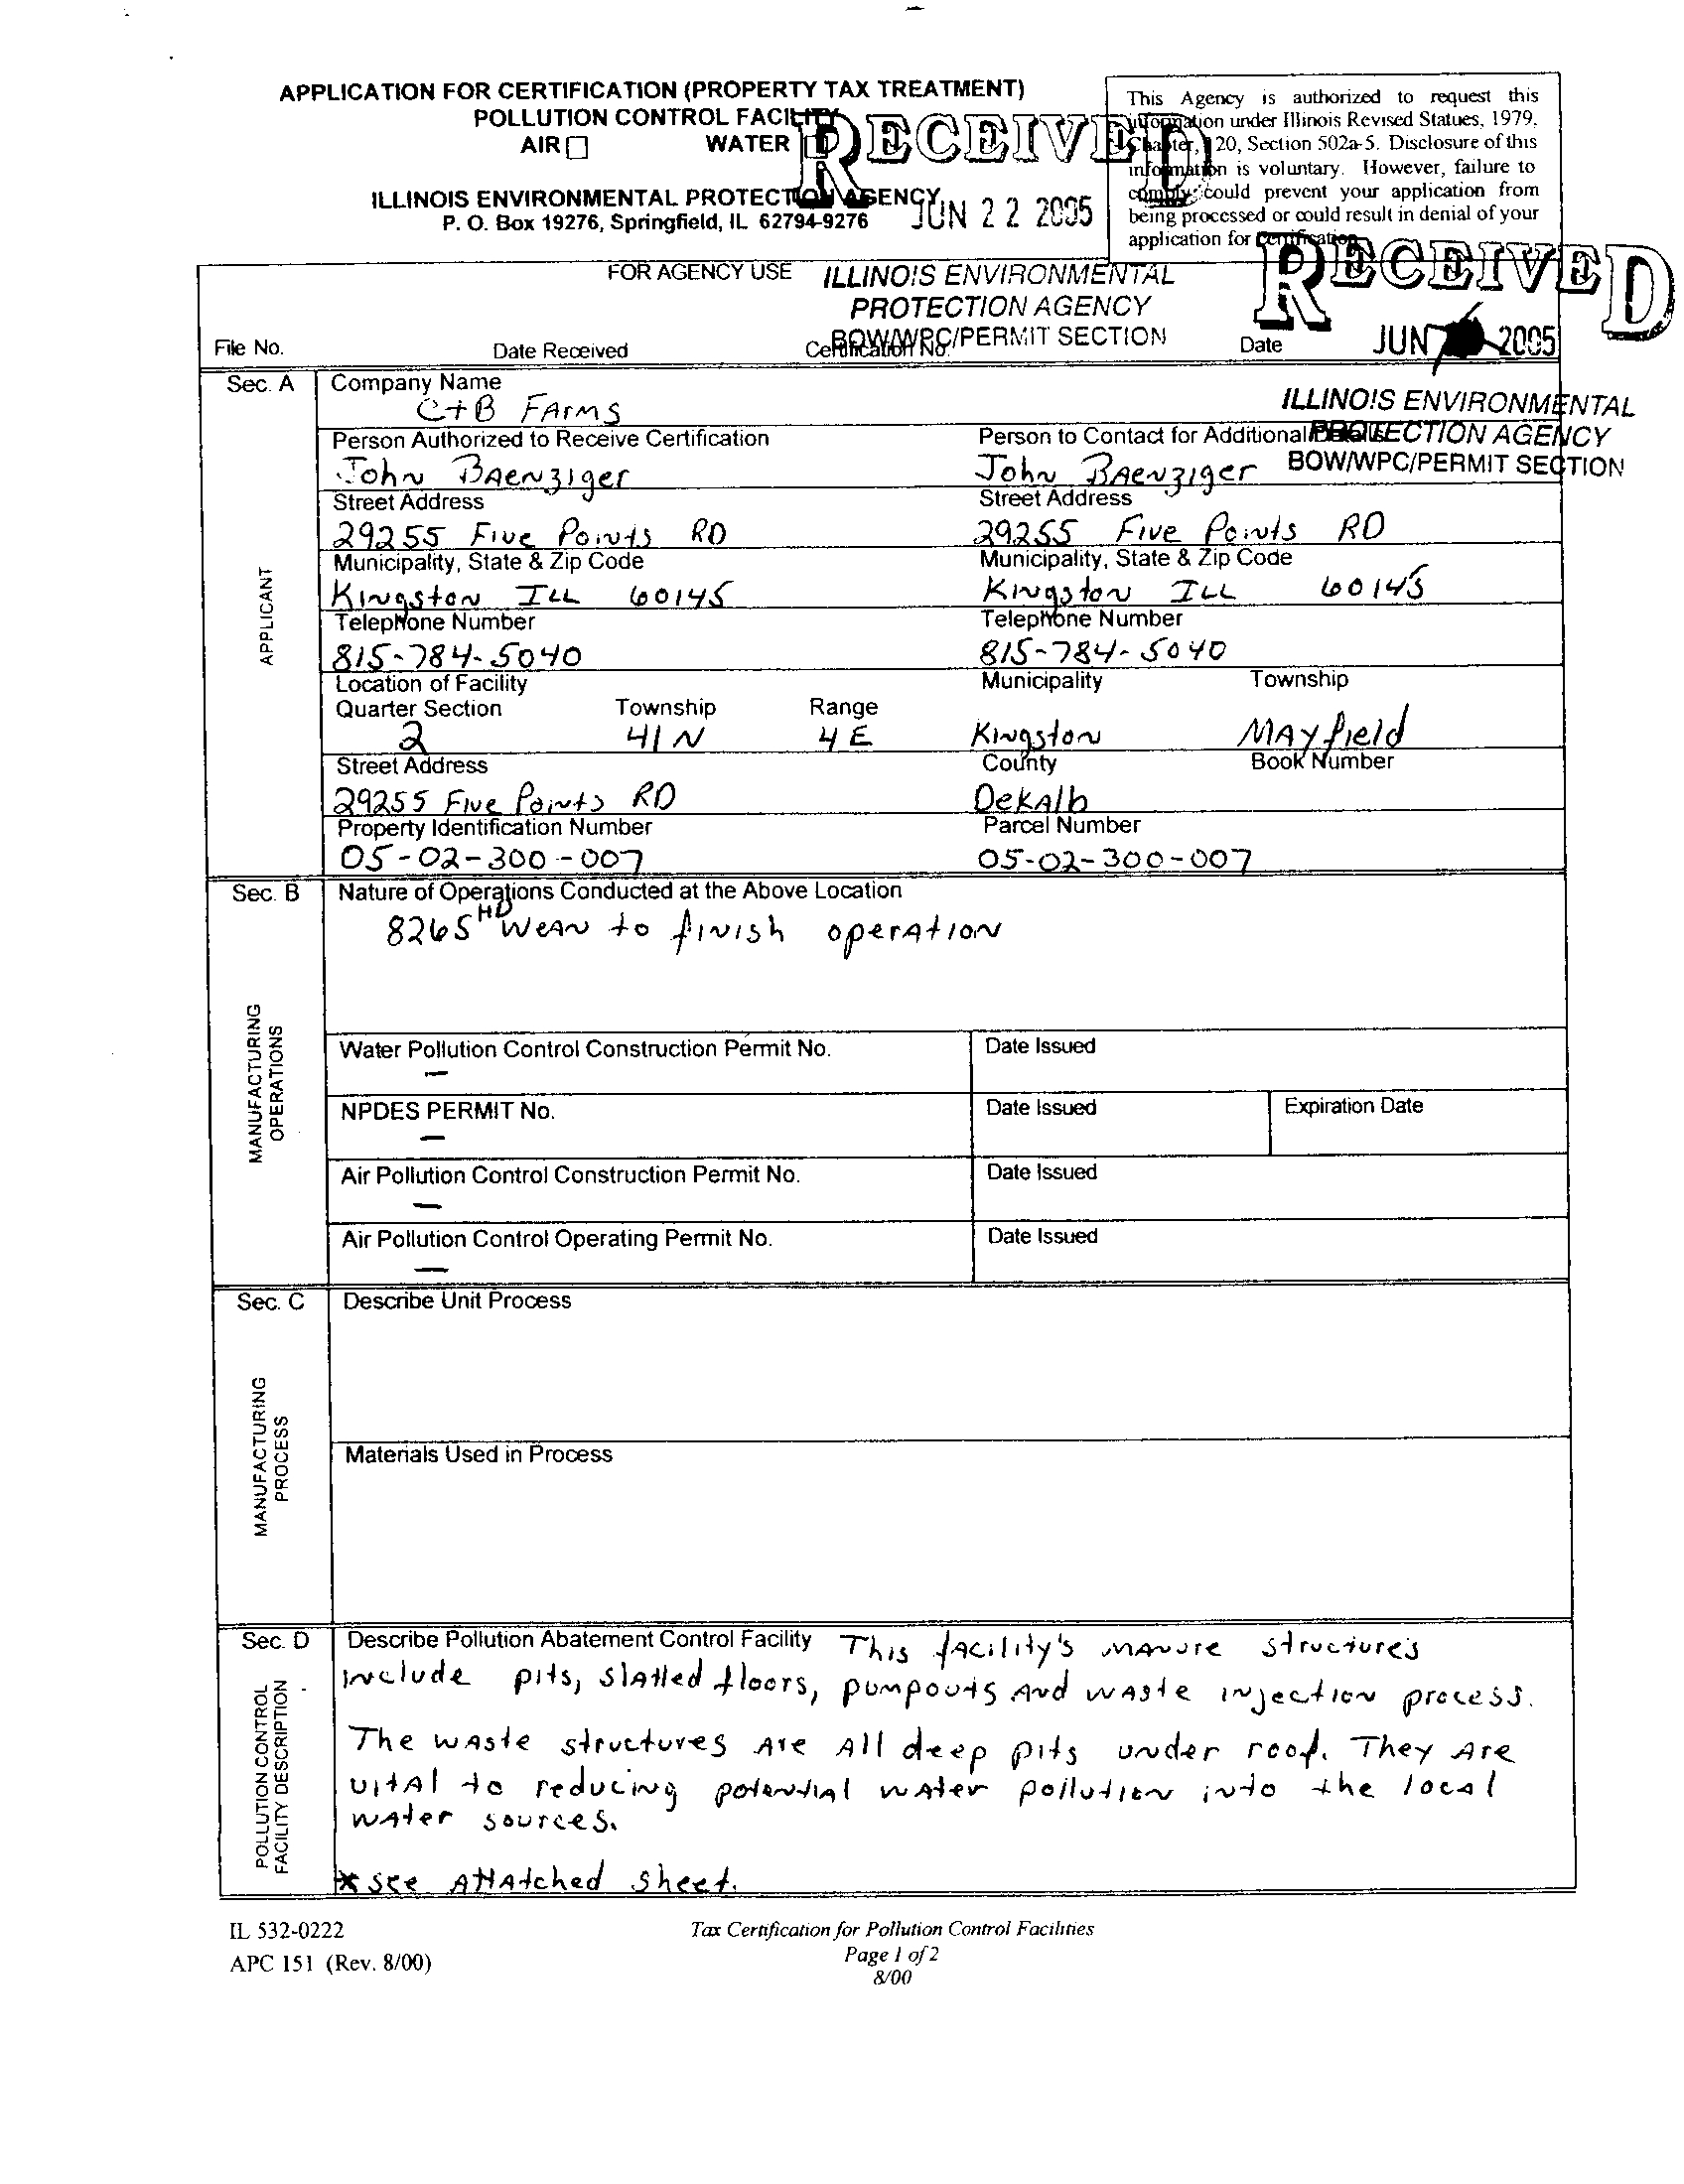 APPLICATION FOR CERTIFICATION (PROPERTY TAX TREATMENT)
POLLUTION CONTROL FACILITY
AIR WATER
RECEIVED
ILLINOIS ENVIRONMENTAL PROTECTION AGENCY
P. O. Box 19276, Springfield, IL 62794-9276
JUN 22 2005
This Agency is authorized to request this
information under Illinois Revised Statues, 1979,
Chapter, 120, Section 502a-5. Disclosure of this
information is voluntary. However, failure to
comply could prevent your application from
being processed or could result in denial of your
application for certification.
RECEIVED
FOR AGENCY USE
ILLINOIS ENVIRONMENTAL
PROTECTION AGENCY
BOW/WPC/PERMIT SECTION
File No. Date Received Certification No. Date
JUN 2005
Sec. A Company Name
C+B FArms
ILLINOIS ENVIRONMENTAL
PROTECTION AGENCY
BOW/WPC/PERMIT SECTION
Person Authorized to Receive Certification Person to Contact for Additional Details
John BAenziger John BAenziger
Street Address Street Address
29255 Five Points RD 29255 Five Points RD
Municipality, State & Zip Code Municipality, State & Zip Code
Kingston ILL 60145 Kingston ILL 60145
Telephone Number Telephone Number
815-784-5040 815-784-5040
APPLICANT
Location of Facility Municipality Township
Quarter Section Township Range
2 41N 4E Kingston MAyfield
Street Address County Book Number
29255 Five Points RD DeKAlb
Property Identification Number Parcel Number
05-02-300-007 05-02-300-007
Sec. B Nature of Operations Conducted at the Above Location
8265 HD WeAN to finish operAtioN
MANUFACTURING
OPERATIONS
Water Pollution Control Construction Permit No. Date Issued
—
NPDES PERMIT No. Date Issued Expiration Date
—
Air Pollution Control Construction Permit No. Date Issued
—
Air Pollution Control Operating Permit No. Date Issued
—
Sec. C Describe Unit Process
MANUFACTURING
PROCESS
Materials Used in Process
Sec. D Describe Pollution Abatement Control Facility This fAcility's mANure structure's
include pits, slAtted floors, pumpouts And wAste injection process.
The wAste structures Are All deep pits under roof. They Are
vitAl to reducing potentiAl wAter pollution into the local
wAter sources.
*see AttAtched sheet.
POLLUTION CONTROL
FACILITY DESCRIPTION
IL 532-0222 Tax Certification for Pollution Control Facilities
APC 151 (Rev. 8/00) Page 1 of 2
8/00